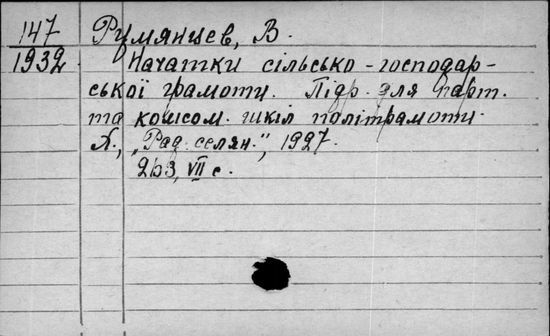 147
1932
Румянцев, В.
Начатки сільсько-господар-
ської грамоти. Підр. для парт.
та комсом. шкіл політграмоти.
Х., „Рад. селян.", 1927.
263, VII с.